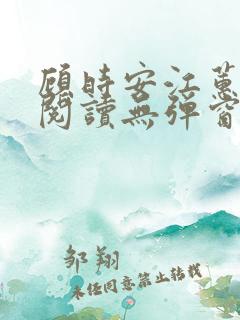 顾时安江蕙
閱讀無彈窗
邹翔
未经同意禁止转载